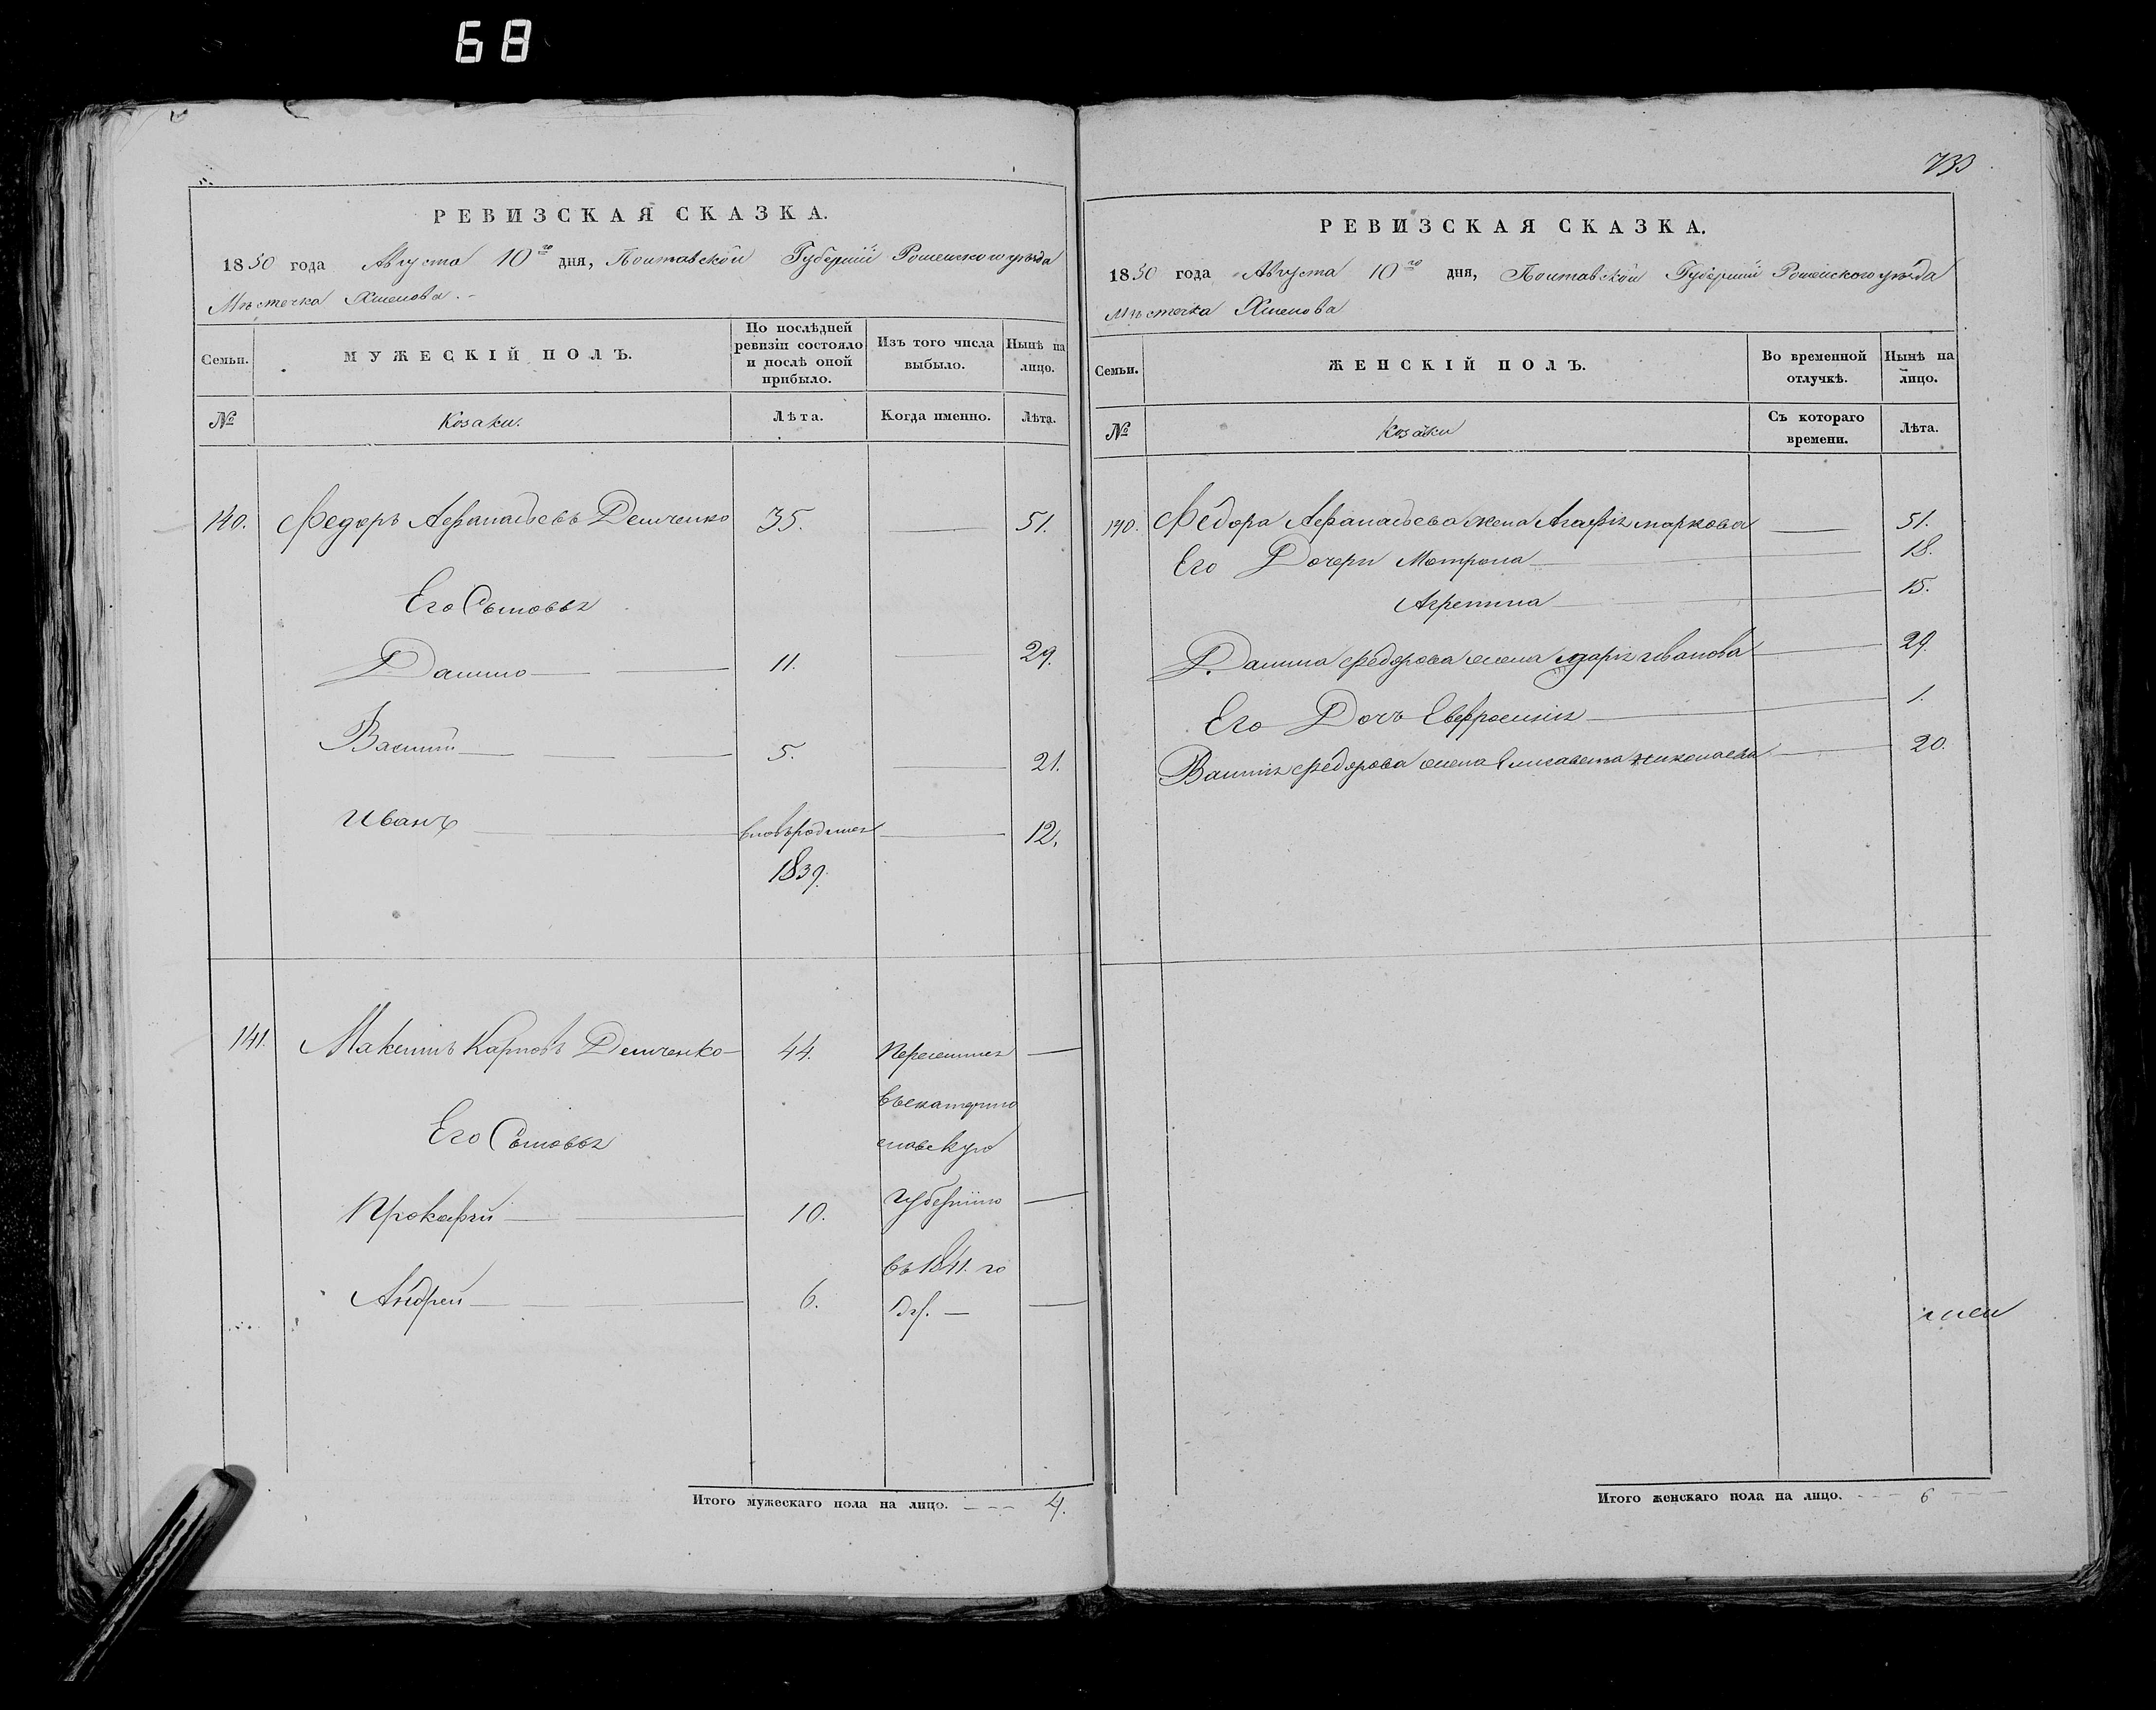 68
РЕВИЗСКАЯ СКАЗКА.
1850 года Августа 10го дня, Полтавской Губерніи Роменского уѣзда
Мѣстечка Хмелова.
Семьи.
МУЖЕСКІЙ ПОЛЪ.
По послѣдней ревизіи состояло и послѣ оной прибыло.
Изъ того числа выбыло.
Нынѣ на лицо.
№
Козаки.
Лѣта.
Когда именно.
Лѣта.
140. Федоръ Афанасьевъ Демченко 35. 51.
Его Сыновья
Данило 11. 29.
Василій 5. 21.
Иванъ вновьродился 12.
1839.
141. Максимъ Карповъ Демченко 44. Переселился
въ екатерино
Его Сыновья славскую
Прокофій 10. губернію
въ 1841. го
Андрей 6. ду.
Итого мужескаго пола на лицо. 4.
РЕВИЗСКАЯ СКАЗКА.
1850 года Августа 10го дня, Полтавской Губерніи Роменского уѣзда
Мѣстечка Хмелова
Семьи.
ЖЕНСКІЙ ПОЛЪ.
Во временной отлучкѣ.
Нынѣ на лицо.
№
Козачки
Съ котораго времени.
Лѣта.
140. Федора Афанасьева жена Агафія маркова 51.
Его Дочери Мотрона 18.
Агрепина 15.
Данила Федорова жена Марія иванова 29.
Его Дочь Евфросинія 1.
Василія Федорова жена Елисавета николаева 20.
Итого женскаго пола на лицо. 6